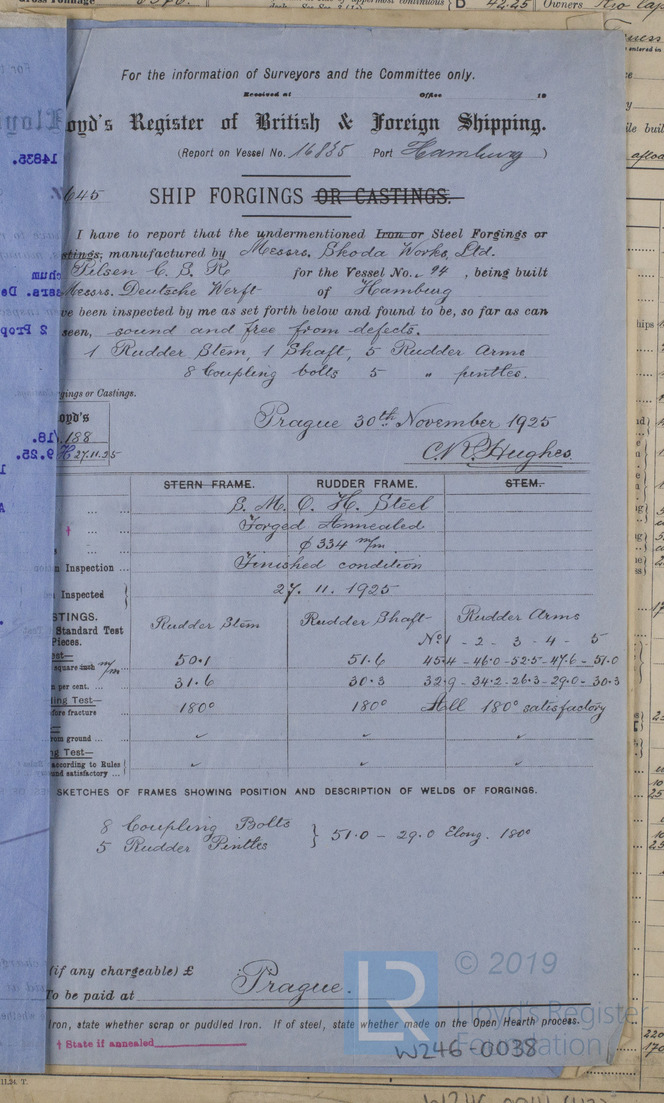 For the information of Surveyors and the Committee only.
Received at Office 19
oyd's Register of British & Foreign Shipping.
(Report on Vessel No. 16835 Port Hamburg )
645
SHIP FORGINGS OR CASTINGS.
I have to report that the undermentioned Iron or Steel Forgings or
stings; manufactured by Messrs. Skoda Works, Ltd.
Pilsen C. S. R for the Vessel No. 94 , being built
Messrs. Deutsche Werft of Hamburg
ve been inspected by me as set forth below and found to be, so far as can
seen, sound and free from defects.
1 Rudder Stem, 1 Shaft, 5 Rudder Arms
8 Coupling bolts 5 " pintles.
rgings or Castings.
oyd's
188
27.11.25
Prague 30th November 1925
C. R. Hughes
STERN FRAME. RUDDER FRAME. STEM.
S. M. O. H. Steel
†
Forged Annealed
φ 334 m/m
n Inspection Finished condition
Inspected 27. 11. 1925
STINGS.
Standard Test
Pieces.
Rudder Stem Rudder Shaft Rudder Arms
No 1 - 2 - 3 - 4 - 5
square inch m/m 50.1 51.6 45.4 - 46.0 - 52.5 - 47.6 - 51.0
n per cent. 31.6 30.3 32.9 - 34.2 - 26.3 - 29.0 - 30.3
ing Test—
fore fracture 180° 180° All 180° satisfactory
rom ground
ng Test—
according to Rules
und satisfactory
SKETCHES OF FRAMES SHOWING POSITION AND DESCRIPTION OF WELDS OF FORGINGS.
8 Coupling Bolts
5 Rudder Pintles } 51.0 - 29.0 Elong. 180°
(if any chargeable) £
To be paid at Prague.
Iron, state whether scrap or puddled Iron. If of steel, state whether made on the Open Hearth process.
† State if annealed
© 2019
LR
Lloyd's Register
Foundation
W246-0038